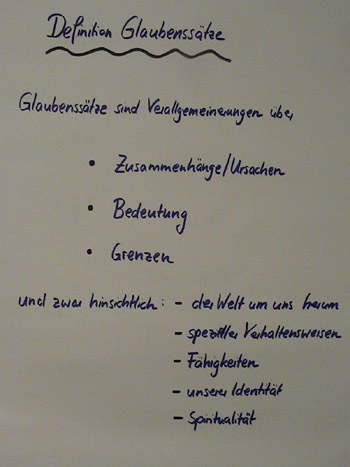 Definition Glaubenssätze
Glaubenssätze sind Verallgemeinerungen über
• Zusammenhänge/Ursachen
• Bedeutung
• Grenzen
und zwar hinsichtlich: - der Welt um uns herum
- spezieller Verhaltensweisen
- Fähigkeiten
- unserer Identität
- Spiritualität